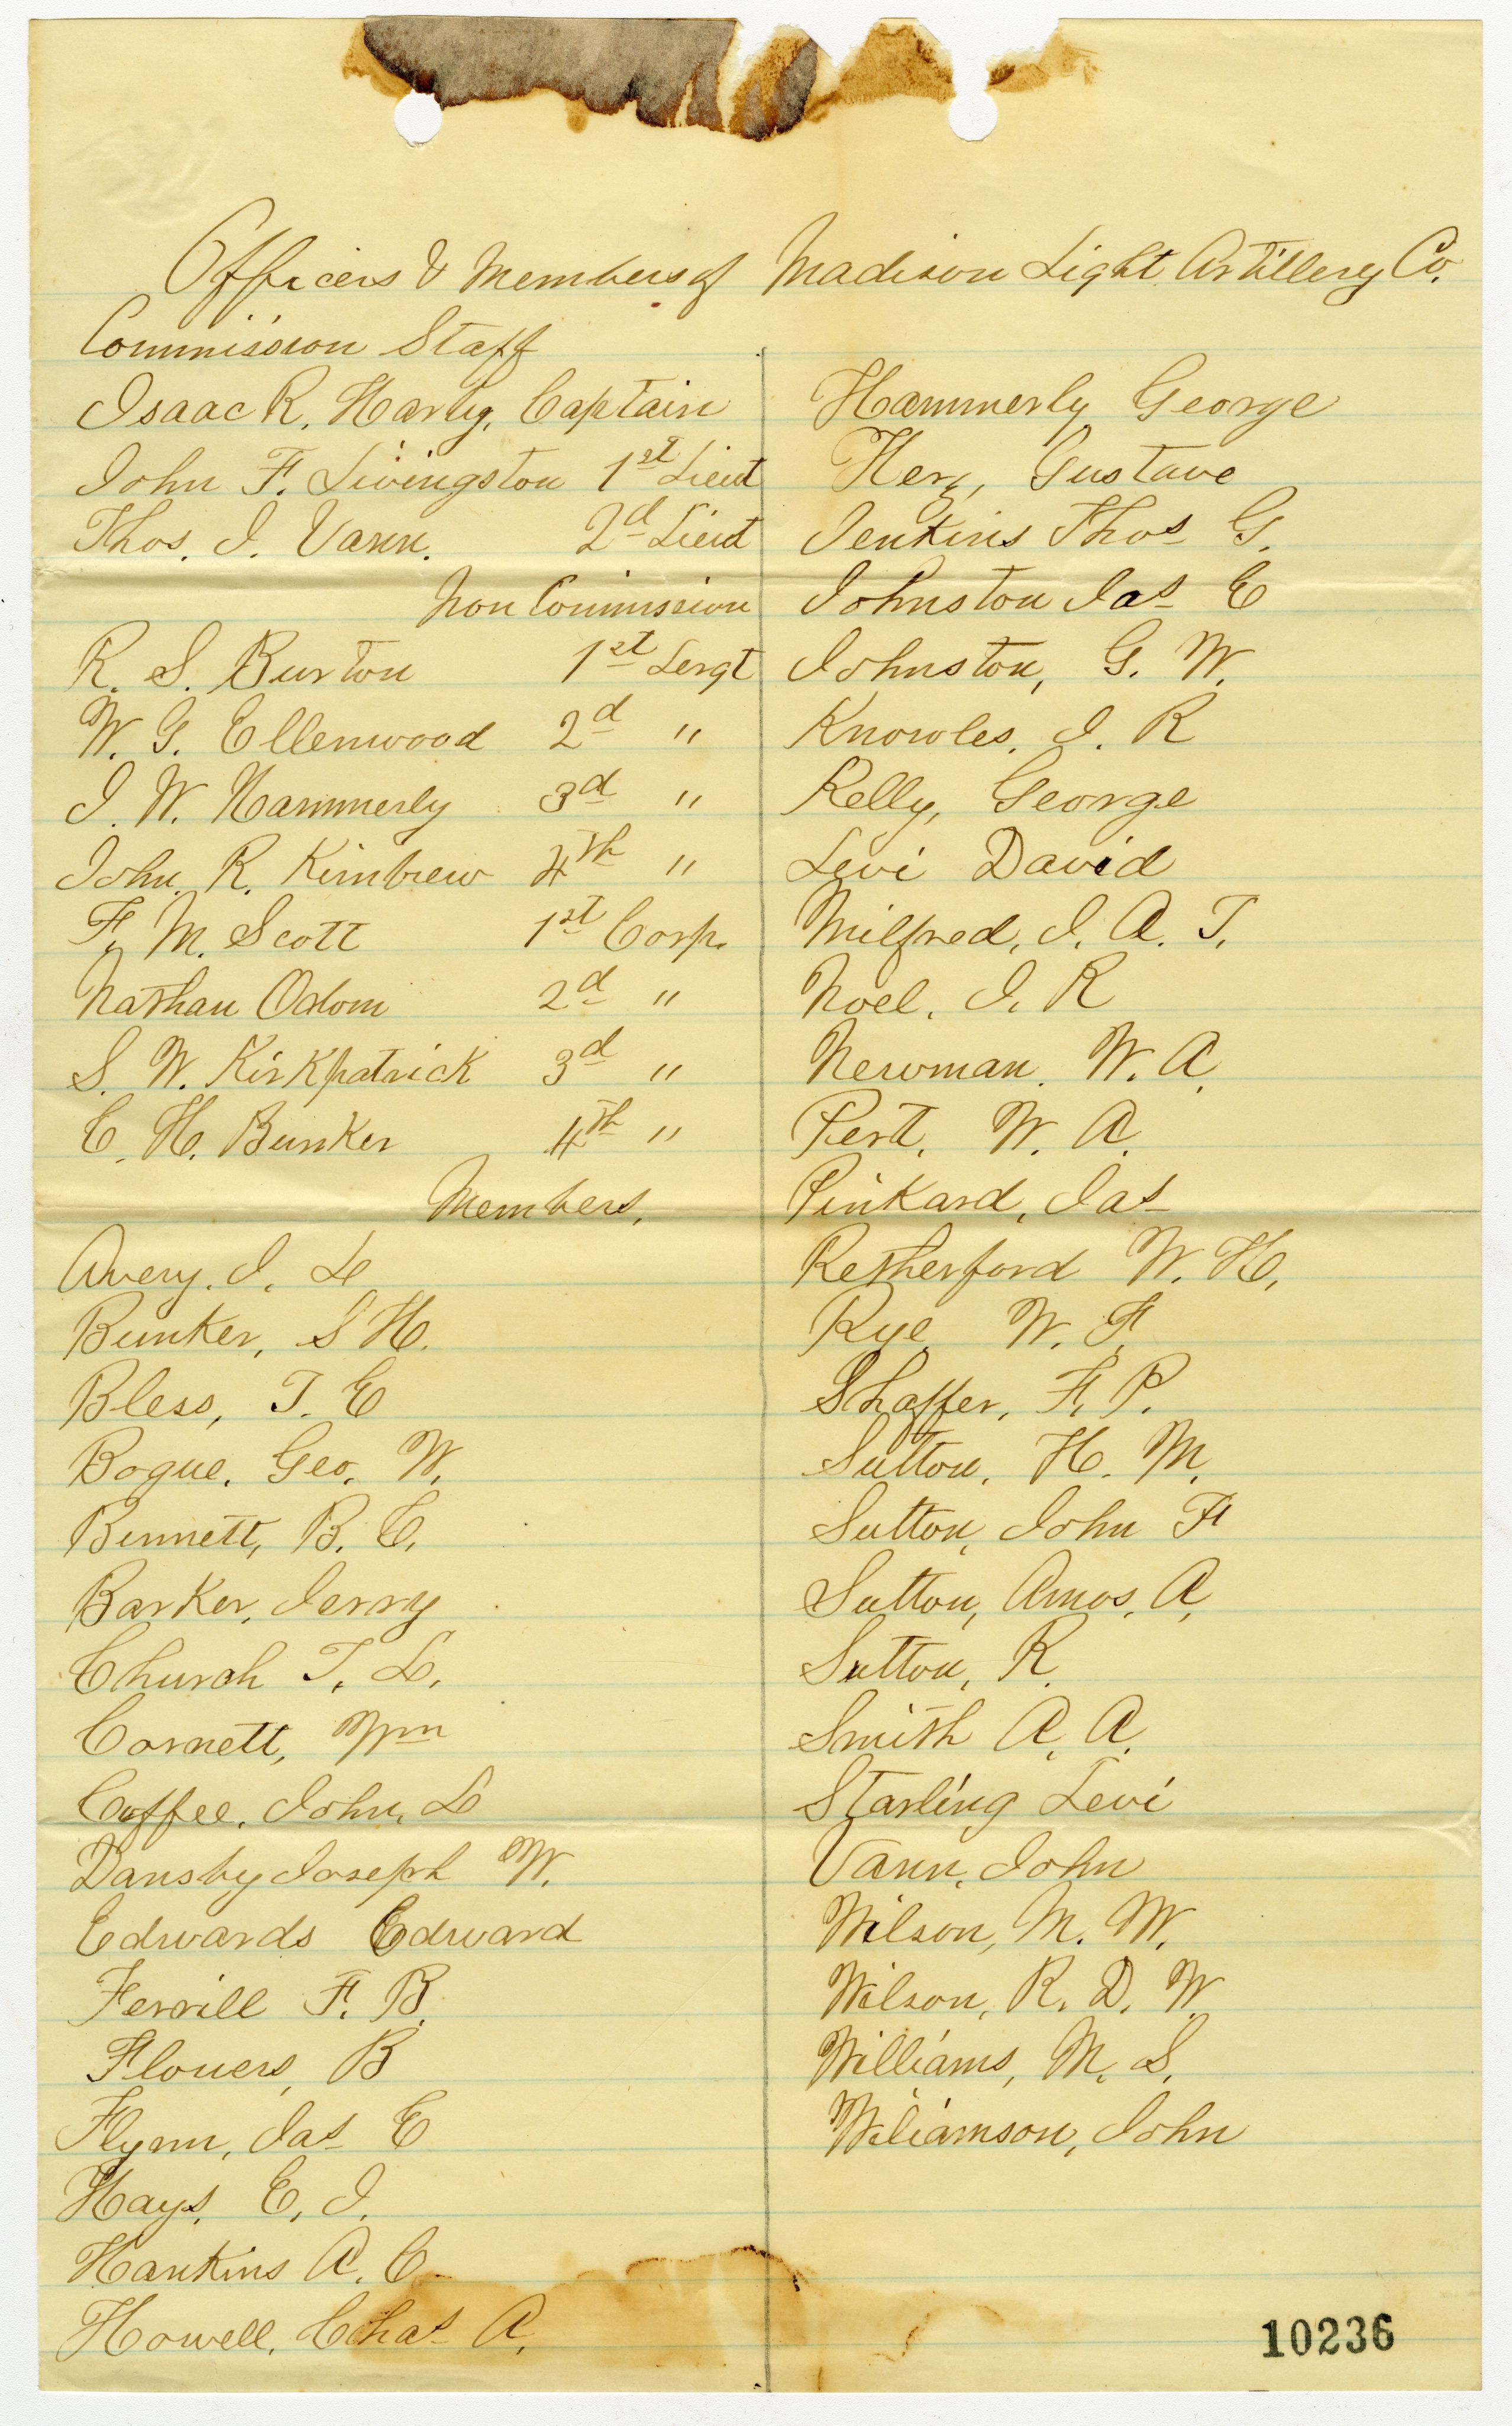 Officers & Members of Madison Light Artillery Co.
Commission Staff
Isaac R. Harby, Captain
John F. Livingston 1st Lieut
Thos. J. Vann. 2d Lieut
Non Commission
R. S. Burton 1st Sergt
W. G. Ellenwood 2d "
J. W. Hammerly 3d "
John. R. Kimbrew 4th "
F. M. Scott 1st Corp.
Nathan Odom 2d "
S. W. Kirkpatrick 3d "
C. H. Bunker 4th "
Members.
Avery. J. L
Bunker, S H.
Bless, T. E
Bogue. Geo. W.
Bennett, B. C.
Barker, Jerry
Church T. L.
Cornett, Wm
Coffee. John. L
Dansby Joseph W.
Edwards Edward
Ferrill F. B.
Flowers, B
Flynn, Jas E
Hays, E. J.
Hankins A. C
Howell, Chas A.
Hammerly George
Herz, Gustave
Jenkins Thos G.
Johnston Jas E
Johnston, G. W.
Knowles. J. R
Kelly, George
Levi David
Milfred, J. A. T.
Noel. J. R
Newman. W. A.
Pert. W. A.
Pinkard, Jas
Retherford W. H.
Rye W. F.
Shaffer, F. P.
Sutton. H. M.
Sutton, John F
Sutton, Amos. A.
Sutton, R.
Smith A. A.
Starling Levi
Vann. John
Wilson, M. W.
Wilson, R. D. W.
Williams, M. S.
Wiliamson, John
10236